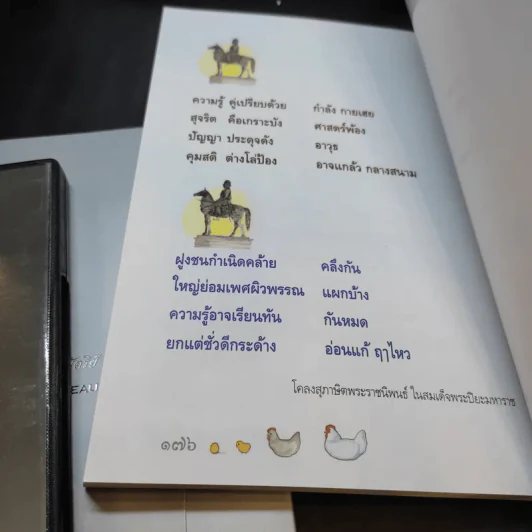 ความรู้ คู่เปรียบด้วย กำลัง กายเฮย
สุจริต คือเกราะบัง ศาสตร์พ้อง
ปัญญา ประดุจดัง อาวุธ
คุมสติ ต่างโล่ป้อง อาจแกล้ว กลางสนาม
ฝูงชนกำเนิดคล้าย คลึงกัน
ใหญ่ย่อมเพศผิวพรรณ แผกบ้าง
ความรู้อาจเรียนทัน กันหมด
ยกแต่ชั่วดีกระด้าง อ่อนแก้ ฤๅไหว
โคลงสุภาษิตพระราชนิพนธ์ ในสมเด็จพระปิยะมหาราช
๑๗๖
EAU